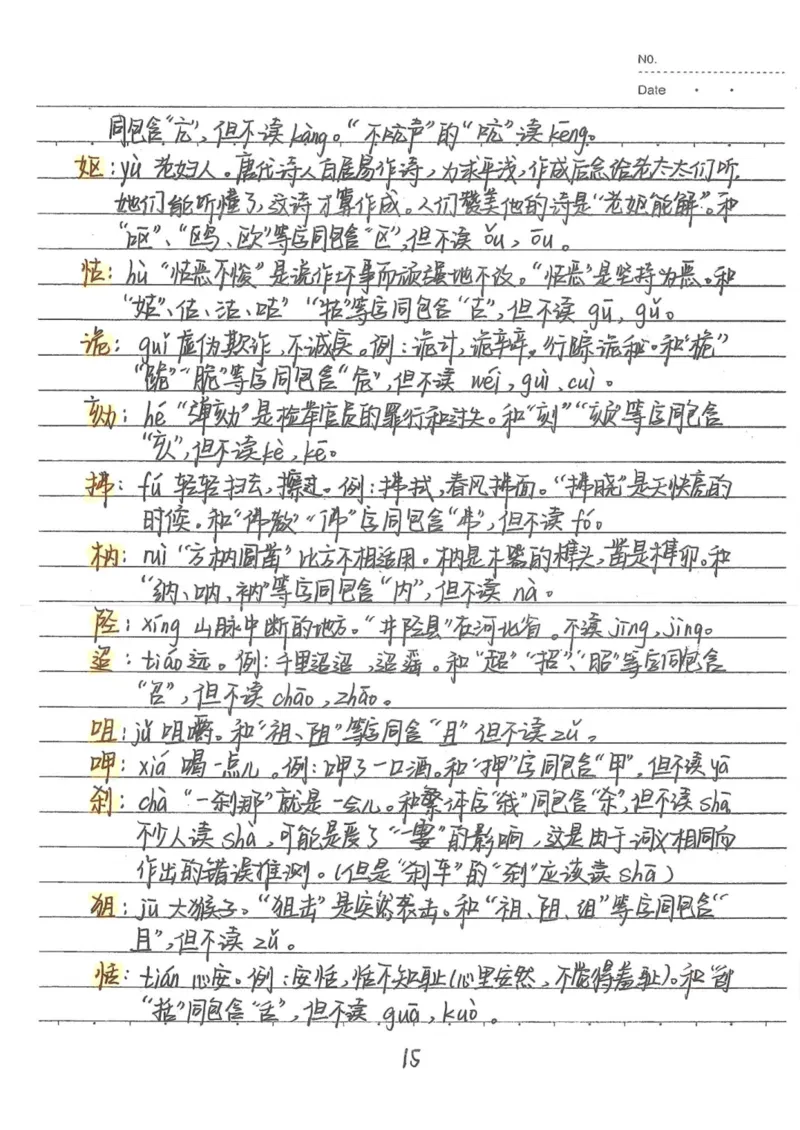 NO.
Date
同包含“亢”,但不读kàng。“不吭声”的“吭”读kēng。
妪:yù 老妇人。唐代诗人白居易作诗,为求平浅,作成后念给老太太们听,
她们能听懂了,这诗才算作成。人们赞美他的诗是“老妪能解”。和
“呕”、“鸥、欧”等字同包含“区”,但不读ǒu,ōu。
怙:hù “怙恶不悛”是说作坏事而顽强地不改。“怙恶”是坚持为恶。和
“姑”、估、沽、咕” “牯”等字同包含“古”,但不读 gū,gǔ。
诡:guǐ 虚伪欺诈,不诚实。例:诡计,诡辩,行踪诡秘。和“桅”
“跪”“脆”等字同包含“危”,但不读 wéi,guì,cuì。
劾:hé “弹劾”是检举官员的罪行和过失。和“刻”“颏”等字同包含
“亥”,但不读kè,kē。
拂:fú 轻轻扫去,擦过。例:拂拭,春风拂面。“拂晓”是天快亮的
时候。和“佛教”“佛”字同包含“弗”,但不读fó。
枘:ruì “方枘圆凿”比方不相适用。枘是木器的榫头,凿是榫卯。和
“纳、呐、衲”等字同包含“内”,但不读 nà。
陉:xíng 山脉中断的地方。“井陉县”在河北省。不读jīng,jìng。
迢:tiáo远。例:千里迢迢,迢遥。和“超”“招”、“昭”等字同包含
“召”,但不读chāo,zhāo。
咀:jǔ咀嚼。和“祖、阻”等字同含“且”但不读zǔ。
呷:xiá 喝一点儿。例:呷了一口酒。和“押”字同包含“甲”,但不读yā
刹:chà “一刹那”就是一会儿。和繁体字“殺”同包含“杀”,但不读shā
不少人读shà,可能是受了“一霎”的影响,这是由于词义相同而
作出的错误推测。(但是“刹车”的“刹”应该读shā)
狙:jū 大猴子。“狙击”是突然袭击。和“祖、阻、组”等字同包含“
且”,但不读 zǔ。
恬:tián 心安。例:安恬,恬不知耻(心里安然,不觉得羞耻)。和“刮”
“括”同包含“舌”,但不读 guā,kuò。
15